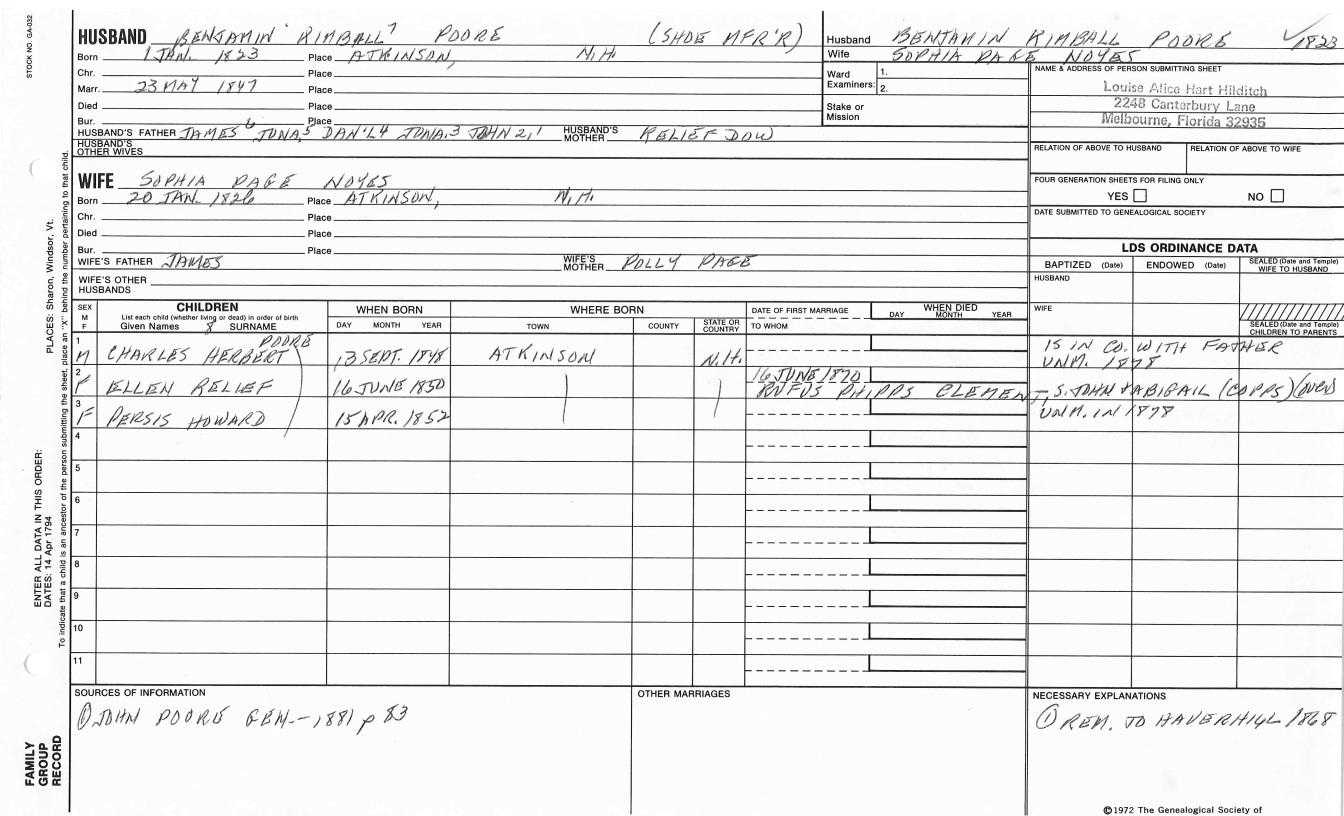 STOCK NO. GA-032
HUSBAND BENJAMIN KIMBALL 7 POORE (SHOE MFR'R)
Born 1 JAN. 1823 Place ATKINSON, N.H.
Chr. Place
Marr. 23 MAY 1847 Place
Died Place
Bur. Place
HUSBAND'S FATHER JAMES 6 JONA,5 DAN'L4 JONA.3 JOHN 2,1 HUSBAND'S MOTHER RELIEF DOW
HUSBAND'S OTHER WIVES
Husband BENJAMIN KIMBALL POORE ✓1823
Wife SOPHIA PAGE NOYES
Ward Examiners: 1.
2.
Stake or Mission
NAME & ADDRESS OF PERSON SUBMITTING SHEET
Louise Alice Hart Hilditch
2248 Canterbury Lane
Melbourne, Florida 32935
RELATION OF ABOVE TO HUSBAND RELATION OF ABOVE TO WIFE
FOUR GENERATION SHEETS FOR FILING ONLY
YES NO
DATE SUBMITTED TO GENEALOGICAL SOCIETY
WIFE SOPHIA PAGE NOYES
Born 20 JAN. 1826 Place ATKINSON, N.H.
Chr. Place
Died Place
Bur. Place
WIFE'S FATHER JAMES WIFE'S MOTHER POLLY PAGE
WIFE'S OTHER HUSBANDS
LDS ORDINANCE DATA
BAPTIZED (Date) ENDOWED (Date) SEALED (Date and Temple) WIFE TO HUSBAND
HUSBAND
WIFE
SEALED (Date and Temple) CHILDREN TO PARENTS
SEX M F
CHILDREN
List each child (whether living or dead) in order of birth
Given Names 8 SURNAME
WHEN BORN
DAY MONTH YEAR
WHERE BORN
TOWN COUNTY STATE OR COUNTRY
DATE OF FIRST MARRIAGE
TO WHOM
WHEN DIED
DAY MONTH YEAR
1 M CHARLES HERBERT POORE 13 SEPT. 1848 ATKINSON N.H. IS IN CO. WITH FATHER
UNM. 1878
2 F ELLEN RELIEF 16 JUNE 1850 16 JUNE 1870
RUFUS PHIPPS CLEMENT, S. JOHN & ABIGAIL (COPPS)
3 F PERSIS HOWARD 15 APR. 1852 UNM. IN 1878
4
5
6
7
8
9
10
11
SOURCES OF INFORMATION
① JOHN POORE GEN.-- 1881 p 83
OTHER MARRIAGES
NECESSARY EXPLANATIONS
① REM. TO HAVERHILL 1868
©1972 The Genealogical Society of
PLACES: Sharon, Windsor, Vt.
To indicate that a child is an ancestor of the person submitting the sheet, place an "X" behind the number pertaining to that child.
ENTER ALL DATA IN THIS ORDER:
DATES: 14 Apr 1794
FAMILY
GROUP
RECORD